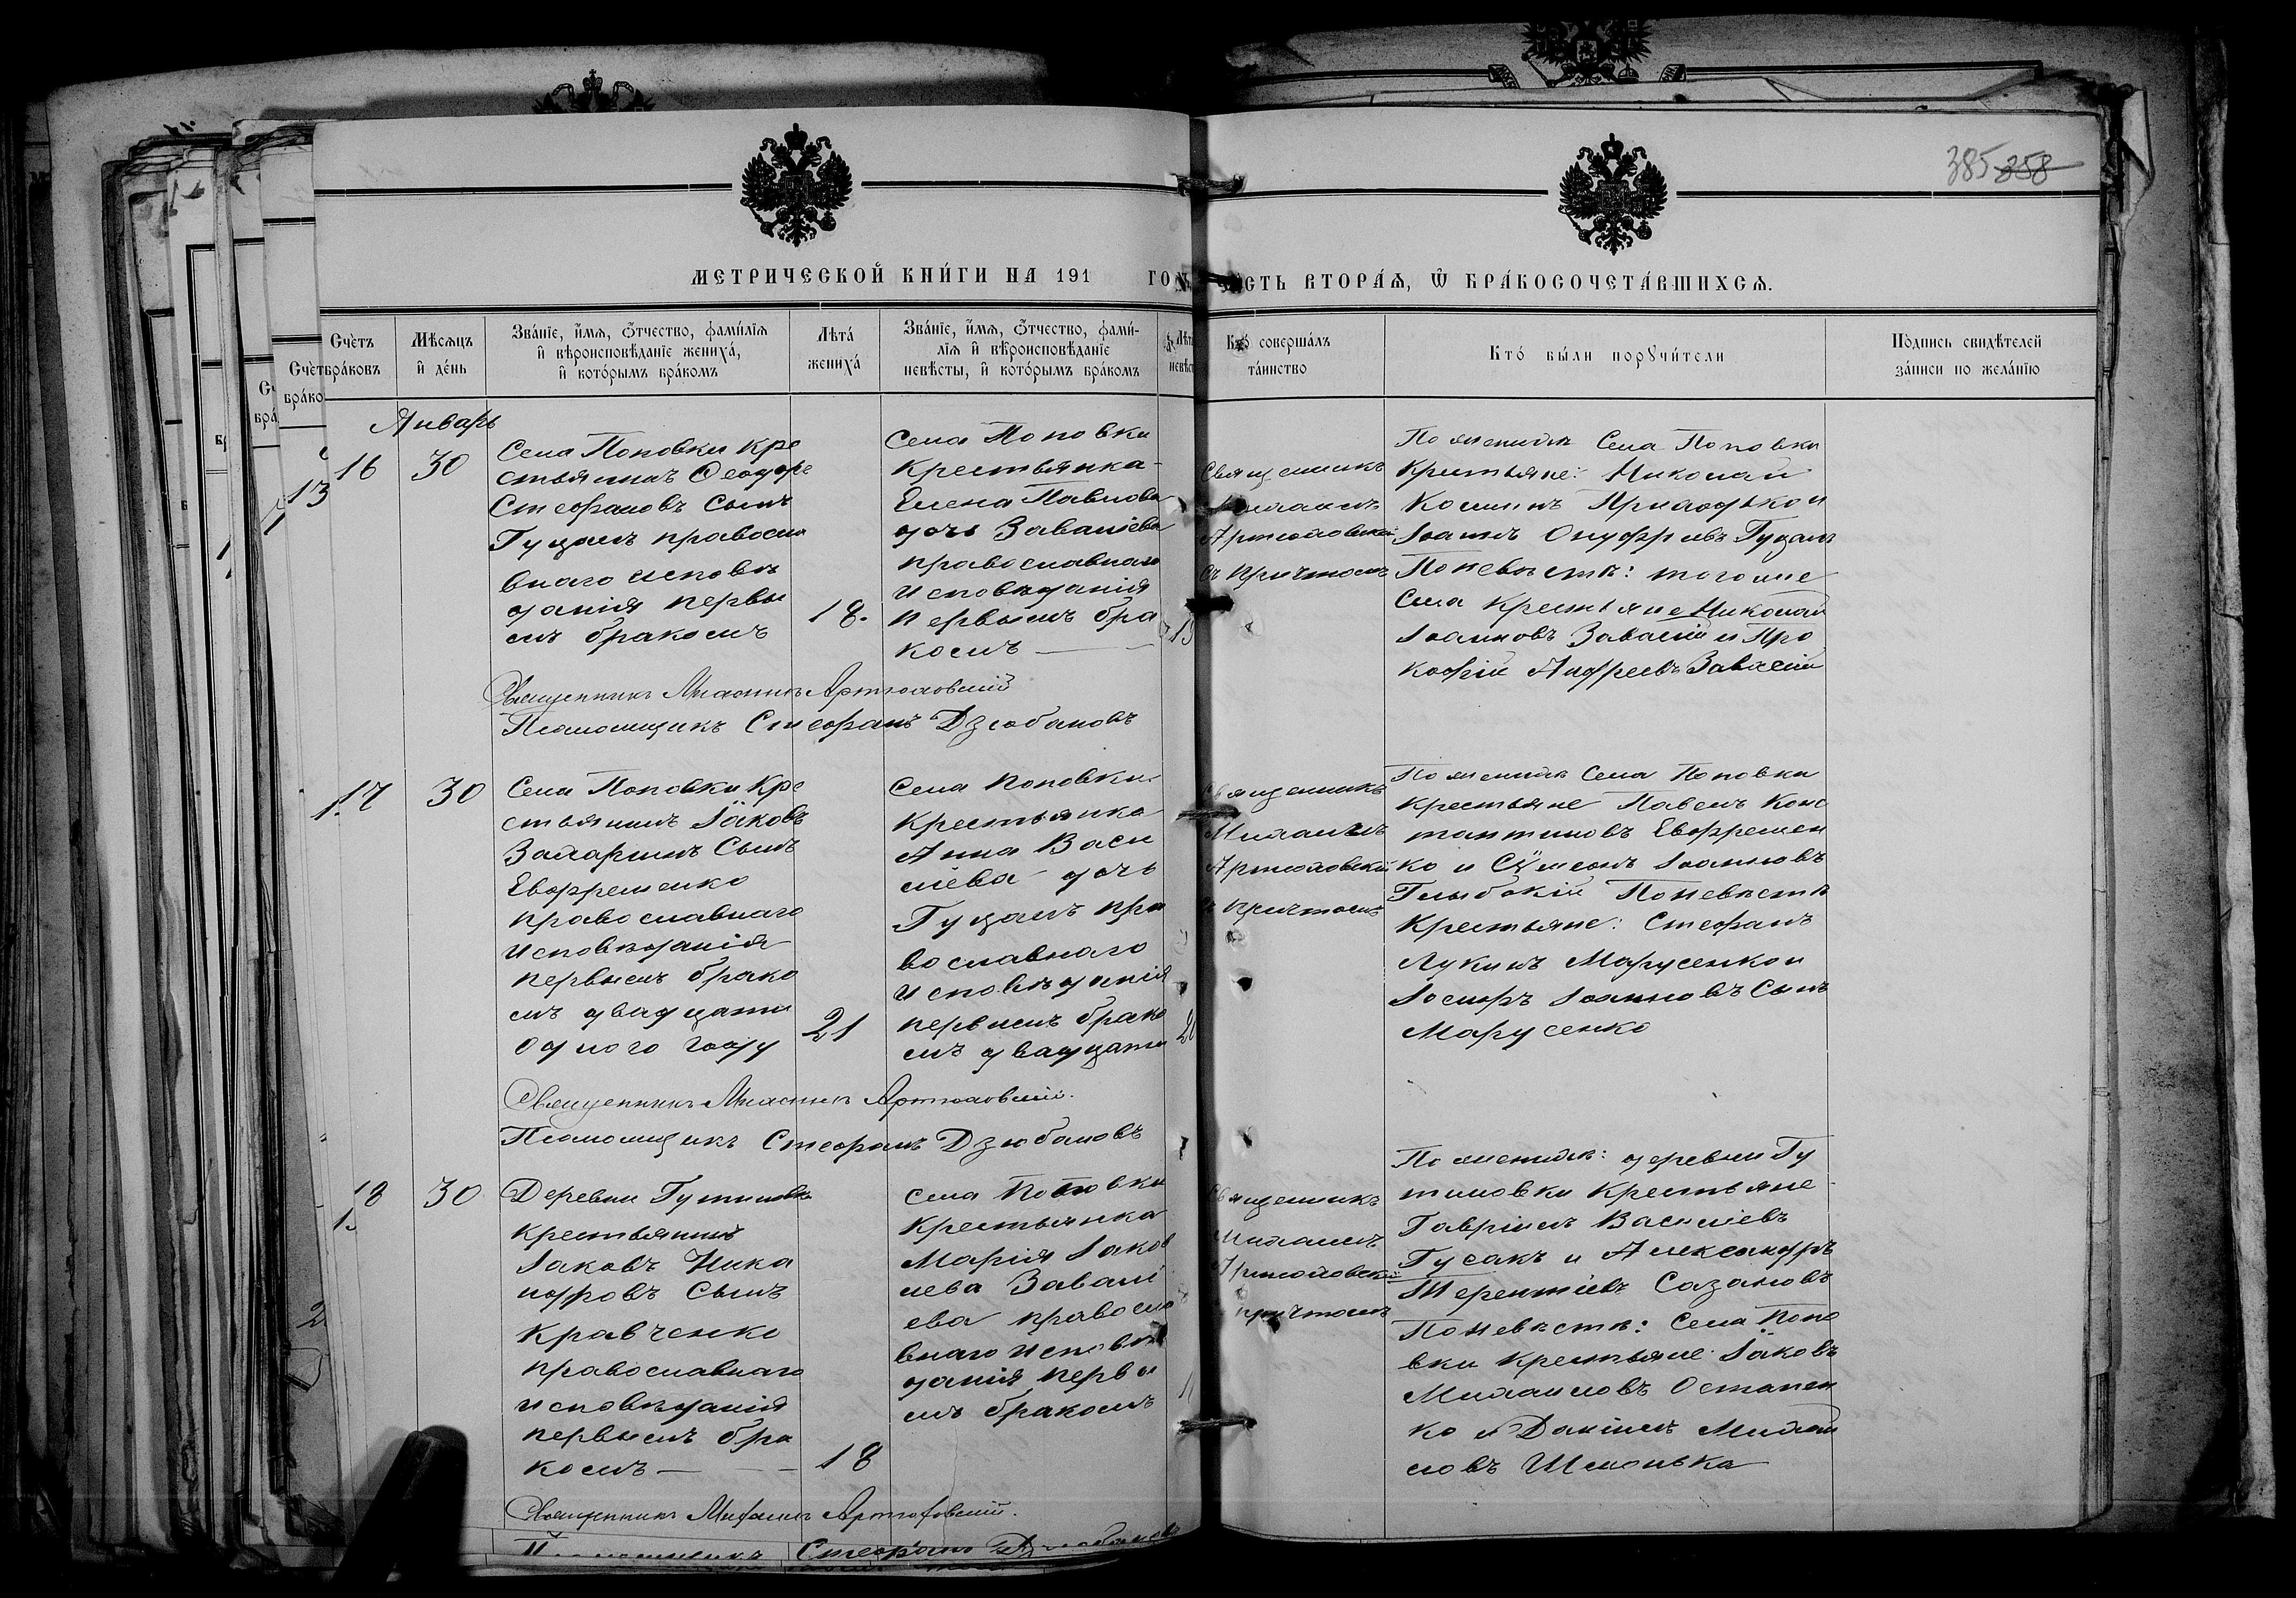 385 358
МЕТРИЧЕСКОЙ КНИ́ГИ НА 191 ГО
СТЬ ВТОРА́Я, Ѿ БРА́КОСОЧЕТА́ВШИХСЯ.
Сче́тъ бра́ковъ
Мѣ́сяцъ и́ де́нь
Зва́нїе, и́мя, о́тчество, фами́лїя и́ вѣроисповѣ́данїе жениха́, и́ кото́рымъ бра́комъ
Лѣта́ жениха́
Зва́нїе, и́мя, о́тчество, фами́-
лїя и́ вѣроисповѣ́данїе
невѣ́сты, и́ кото́рымъ бра́комъ
Кто́ соверша́лъ
та́инство
Кто́ бы́ли поручи́тели
По́дпись свидѣ́телей
за́писи по жела́нїю
Январь
16
30
Села Поповки кре
стьянинъ Ѳеодоръ
Стефановъ сынъ
Гуцалъ правосла
внаго исповѣ
данія первы
мъ бракомъ
18.
Села Поповки
крестьянка
Елена Павлова
дочь Завалiева
православнаго
исповѣданія
первымъ бра
комъ
Священникъ
Михаилъ
Артюховскій
съ причтомъ
По женихѣ Села Поповки
крестьяне: Николай
Іоаннъ Онуфріевъ Гуцалъ
По невѣстѣ: того же
села крестьяне Николай
Іоанновъ Завалій и Про
кофій Андреевъ Завалій
Священникъ Михаилъ Артюховскій
Псаломщикъ Стефанъ Дзюбановъ
17
30
Села Поповки кре
стьянинъ Іаковъ
Захаринъ сынъ
Евфременко
православнаго
исповѣданія
первымъ брако
мъ двадцати
одного году
21
Села Поповки
крестьянка
Анна Васи
ліева дочь
Гуцалъ пра
вославнаго
исповѣданія
первымъ брако
мъ двадцати
Священникъ
Михаилъ
Артюховскій
съ причтомъ
По женихѣ Села Поповки
крестьяне Павелъ Конс
тантиновъ Евфремен
ко и Сѵмеонъ Іоанновъ
Глыбокій По невѣстѣ
крестьяне: Стефанъ
Лукинъ Марусенко и
Іосифъ Іоанновъ сынъ
Марусенко
Священникъ Михаилъ Артюховскій.
Псаломщикъ Стефанъ Дзюбановъ
18
30
Деревни Гутиловки
крестьянинъ
Іаковъ Ника
норовъ сынъ
Кравченко
православнаго
исповѣданія
первымъ бра
комъ
18
Села Поповки
крестьянка
Марія Іаков
лева Завалі
ева правосла
внаго исповѣ
данія первы
мъ бракомъ
Священникъ
Михаилъ
Артюховскій
причтомъ
По женихѣ: деревни Гу
тиловки крестьяне
Гавріилъ Василіевъ
Гусакъ и Александръ
Терентіевъ Сазановъ
По невѣстѣ: Села Попо
вки крестьяне: Іаковъ
Михаиловъ Остапен
ко и Даніилъ Михаи
ловъ
Священникъ Михаилъ Артюховскій.
Псаломщикъ Стефанъ Дзюбановъ